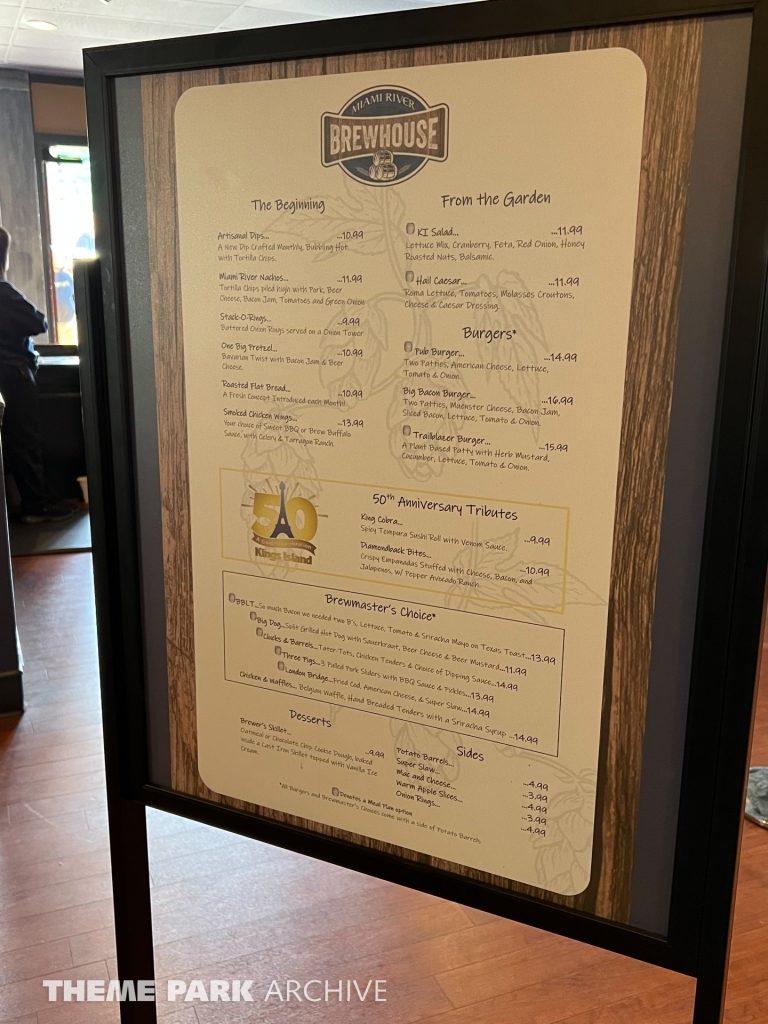 MIAMI RIVER
BREWHOUSE
The Beginning
Artisanal Dips... ...10.99
A New Dip Crafted Monthly, Bubbling Hot
with Tortilla Chips.
Miami River Nachos... ...11.99
Tortilla Chips piled high with Pork, Beer
Cheese, Bacon Jam, Tomatoes and Green Onion
Stack-O-Rings... ...9.99
Battered Onion Rings served on a Onion Tower
One Big Pretzel... ...10.99
Bavarian Twist with Bacon Jam & Beer
Cheese.
Roasted Flat Bread... ...10.99
A Fresh Concept Introduced each Month!
Smoked Chicken Wings... ...13.99
Your choice of Sweet BBQ or Brew Buffalo
Sauce, with Celery & Tarragon Ranch.
From the Garden
KI Salad... ...11.99
Lettuce Mix, Cranberry, Feta, Red Onion, Honey
Roasted Nuts, Balsamic.
Hail Caesar... ...11.99
Roma Lettuce, Tomatoes, Molasses Croutons,
Cheese & Caesar Dressing.
Burgers*
Pub Burger... ...14.99
Two Patties, American Cheese, Lettuce,
Tomato & Onion.
Big Bacon Burger... ...16.99
Two Patties, Muenster Cheese, Bacon Jam,
Sliced Bacon, Lettuce, Tomato & Onion.
Trailblazer Burger... ...15.99
A Plant Based Patty with Herb Mustard,
Cucumber, Lettuce, Tomato & Onion.
50
Kings Island
50th Anniversary Tributes
King Cobra... ...9.99
Spicy Tempura Sushi Roll with Venom Sauce.
Diamondback Bites... ...10.99
Crispy Empanadas Stuffed with Cheese, Bacon, and
Jalapenos, w/ Pepper Avocado Ranch.
Brewmaster's Choice*
BBLT...So much Bacon we needed two B's, Lettuce, Tomato & Sriracha Mayo on Texas Toast...13.99
Big Dog...Split Grilled Hot Dog with Sauerkraut, Beer Cheese & Beer Mustard...11.99
Clucks & Barrels...Tater Tots, Chicken Tenders & Choice of Dipping Sauce...14.99
Three Pigs...3 Pulled Pork Sliders with BBQ Sauce & Pickles...13.99
London Bridge...Fried Cod, American Cheese, & Super Slaw...14.99
Chicken & Waffles... Belgian Waffle, Hand Breaded Tenders with a Sriracha Syrup ...14.99
Desserts
Brewer's Skillet... ...9.99
Oatmeal or Chocolate Chip Cookie Dough, baked
inside a Cast Iron Skillet topped with Vanilla Ice
Cream.
Sides
Potato Barrels... ...4.99
Super Slaw... ...3.99
Mac and Cheese... ...4.99
Warm Apple Slices... ...3.99
Onion Rings... ...4.99
Denotes a Meal Plan option
*All Burgers and Brewmaster's Choices come with a side of Potato Barrels
THEME PARK ARCHIVE